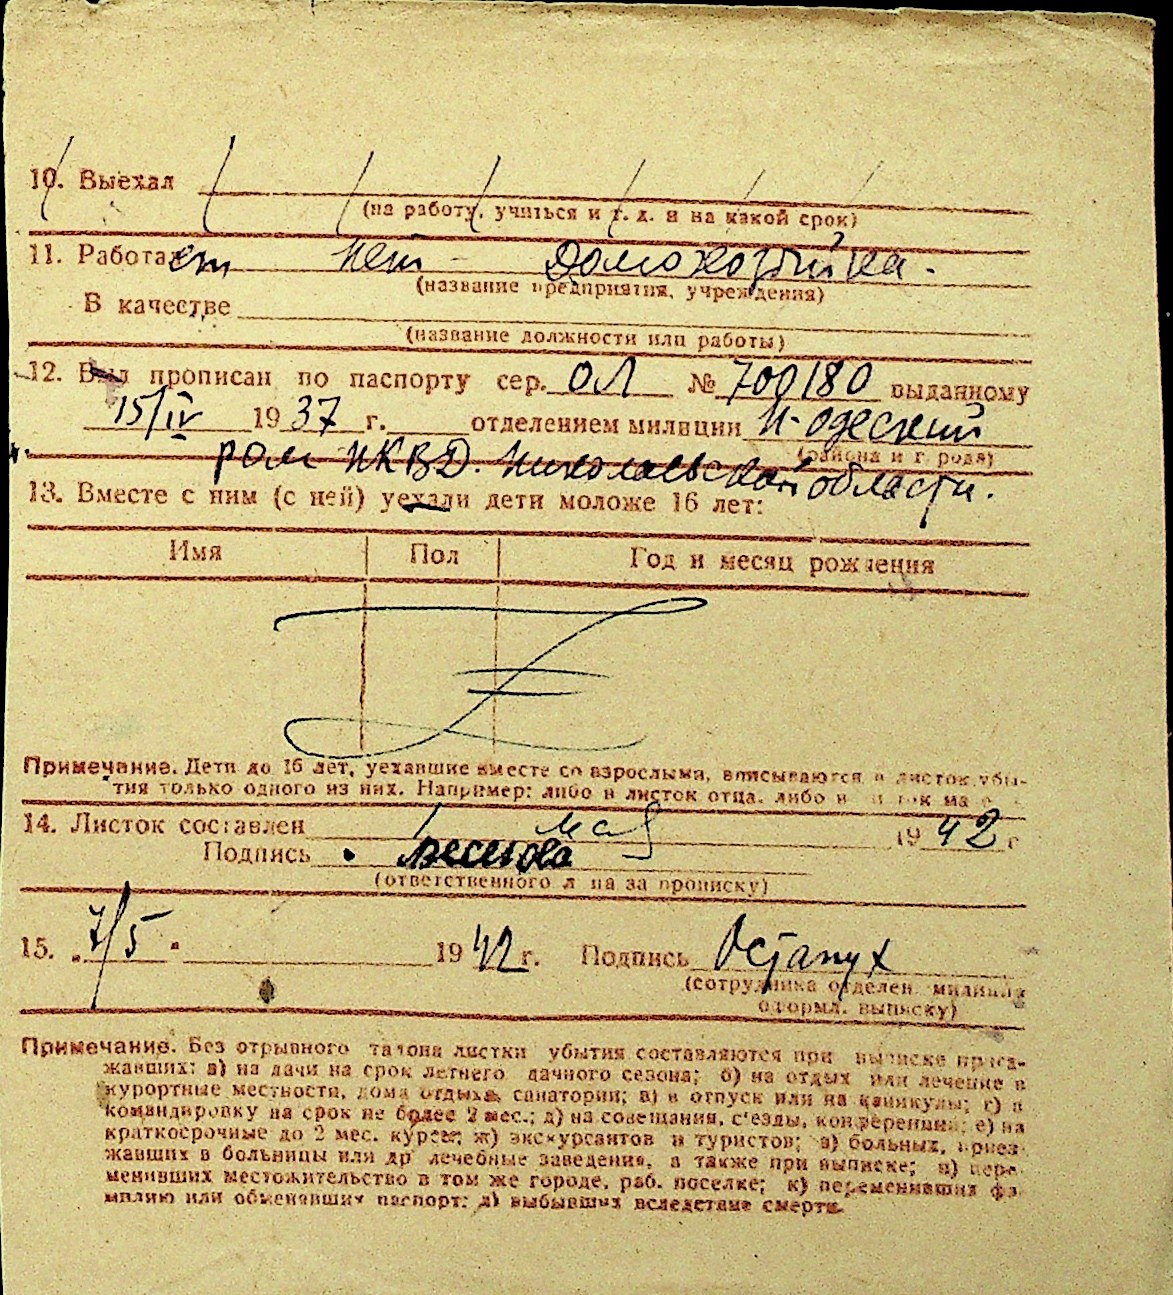 10. Выехал
(на работу, учиться и т. д. и на какой срок)
11. Работает нет - Домохозяйка.
(название предприятия, учреждения)
В качестве
(название должности или работы)
12. Был прописан по паспорту сер. ОЛ № 700180 выданному
15/IV 1937 г. отделением милиции Н-Одеский
(района и города)
ром НКВД. Николаевской области.
13. Вместе с ним (с ней) уехали дети моложе 16 лет:
Имя Пол Год и месяц рождения
Примечание. Дети до 16 лет, уехавшие вместе со взрослыми, вписываются в листок убы-
тия только одного из них. Например: либо в листок отца, либо в
14. Листок составлен 1942 г
Подпись
(ответственного лица за прописку)
15. „7/5" 1942 г. Подпись Остапух
(сотрудника отделен. милиции
оформл. выписку)
Примечание. Без отрывного талона листки убытия составляются при выписке приез-
жавших: а) на дачи на срок летнего дачного сезона; б) на отдых или лечение в
курортные местности, дома отдыха, санатории; в) в отпуск или на каникулы; г) в
командировку на срок не более 2 мес.; д) на совещания, с'езды, конференции; е) на
краткосрочные до 2 мес. курсы; ж) экскурсантов и туристов; з) больных, приез-
жавших в больницы или др лечебные заведения, а также при выписке; и) пере-
менивших местожительство в том же городе, раб. поселке; к) переменивших фа-
милию или обменявших паспорт; л) выбывших вследствие смерти.